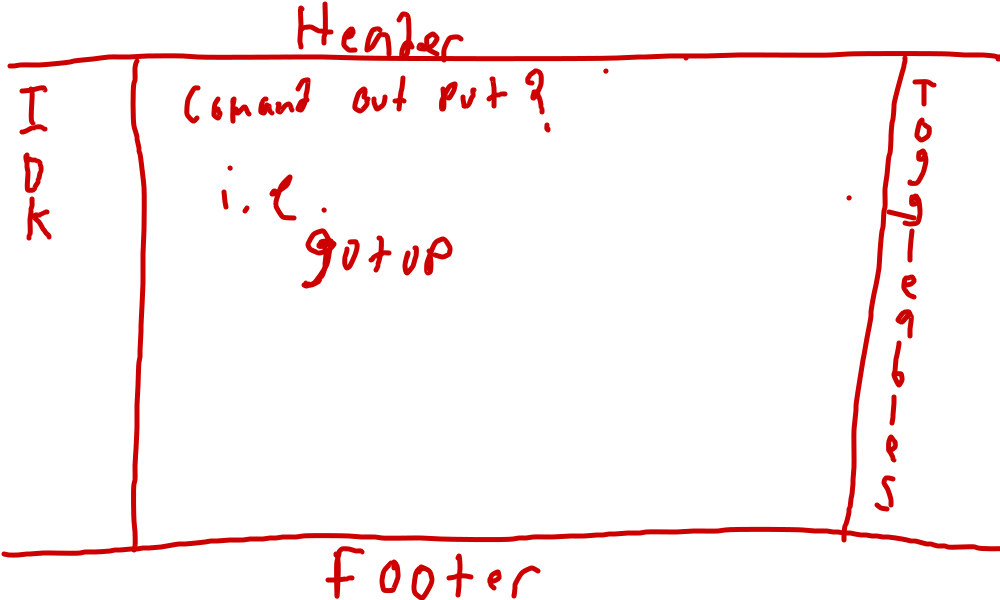 Header
IDK
Comand out put?
i.e.
gotop
Toggleables
Footer